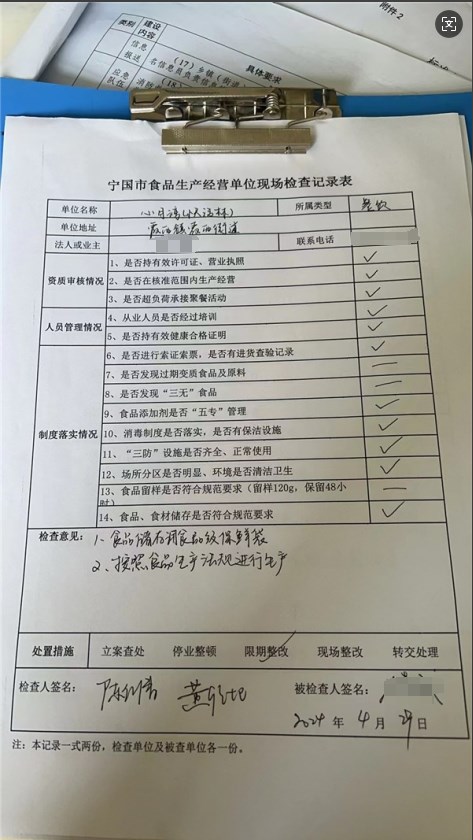 附件2
类别
建设内容
具体要求
信息报送
(17)乡镇(街道
名信息员负责信息
应急队伍
消防
(18)
宁国市食品生产经营单位现场检查记录表
单位名称
所属类型 餐饮
单位地址 霞西镇霞西街道
法人或业主
联系电话
资质审核情况
1、是否持有效许可证、营业执照 ✓
2、是否在核准范围内生产经营 ✓
3、是否超负荷承接聚餐活动 ✓
人员管理情况
4、从业人员是否经过培训 ✓
5、是否持有效健康合格证明 ✓
制度落实情况
6、是否进行索证索票,是否有进货查验记录 ✓
7、是否发现过期变质食品及原料 —
8、是否发现“三无”食品 —
9、食品添加剂是否“五专”管理 ✓
10、消毒制度是否落实,是否有保洁设施 ✓
11、“三防”设施是否齐全、正常使用 ✓
12、场所分区是否明显、环境是否清洁卫生 ✓
13、食品留样是否符合规范要求(留样120g,保留48小时) —
14、食品、食材储存是否符合规范要求 ✓
检查意见:1、食品储存用食品级保鲜袋
2、按照食品生产法规进行生产
处置措施 立案查处 停业整顿 限期整改 ✓ 现场整改 转交处理
检查人签名:
被检查人签名:
2024年4月29日
注:本记录一式两份,检查单位及被查单位各一份。